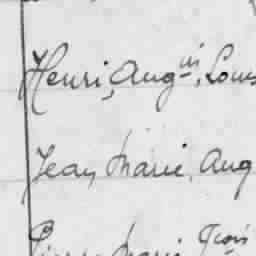 Henri, Augin, Louis
Jean, Marie, Aug
Pierre, Marie, Fçois